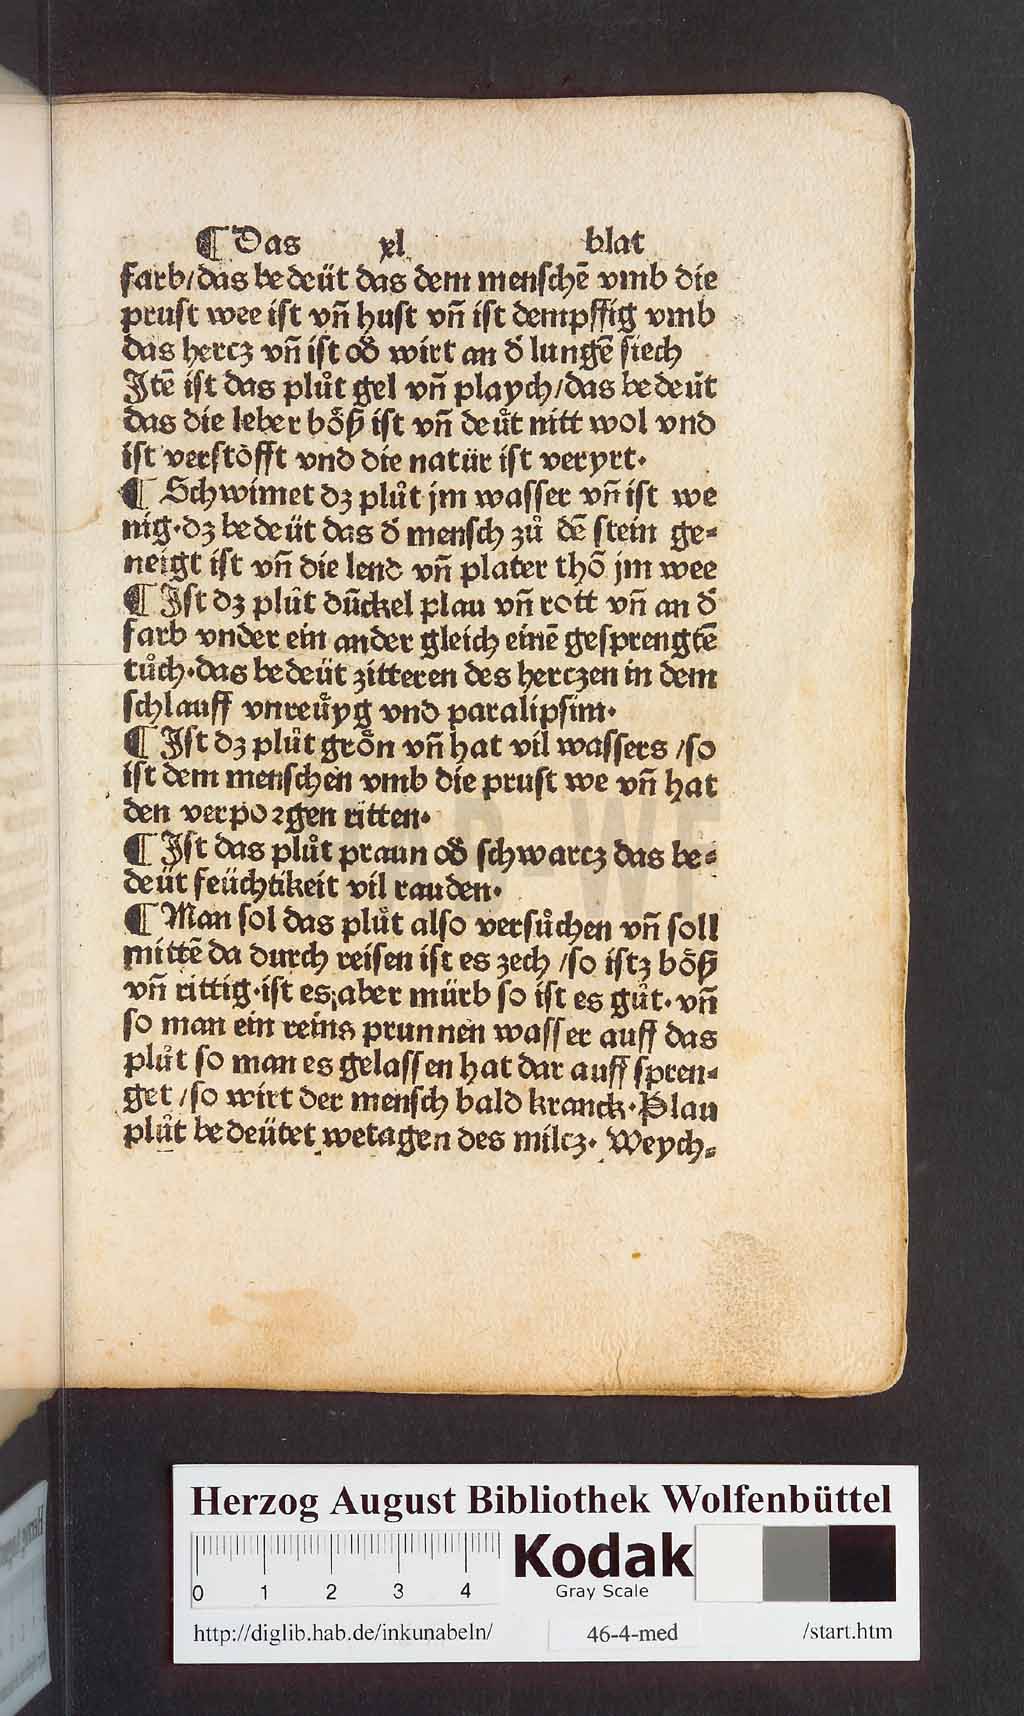 ¶ Das xl blat
farb/das bedeüt das dem menschē vmb die
prust wee ist vñ hust vñ ist dempffig vmb
das hercz vñ ist od̓ wirt an d̓ lungē siech
Jtē ist das plůt gel vñ playch/das bedeüt
das die leber böß ist vñ deüt nitt wol vnd
ist verstöfft vnd die natür ist veryrt·
¶ Schwimet dz plůt jm wasser vñ ist we
nig·dz bedeüt das d̓ mensch zů dē stein ge⸗
neigt ist vñ die lend vñ plater thō jm wee
¶ Jst dz plůt dūckel plau vñ rott vñ an d̓
farb vnder ein ander gleich einē gesprengtē
tůch·das bedeüt zitteren des herczen in dem
schlauff vnreüyg vnd paralipsim·
¶ Jst dz plůt grön vñ hat vil wassers /so
ist dem menschen vmb die prust we vñ hat
den verpoꝛgen ritten·
¶ Jst das plůt praun od̓ schwarcz das be⸗
deüt feüchtikeit vil rauden·
¶ Man sol das plůt also versůchen vñ soll
mittē da durch reisen ist es zech /so istz böß
vñ rittig·ist es aber mürb so ist es gůt·vñ
so man ein reins prunnen wasser auff das
plůt so man es gelassen hat dar auff spren⸗
get /so wirt der mensch bald kranck·Plau
plůt bedeütet wetagen des milcz· Weych⸗
Herzog August Bibliothek Wolfenbüttel
0 1 2 3 4
Kodak
Gray Scale
http://diglib.hab.de/inkunabeln/ 46-4-med /start.htm